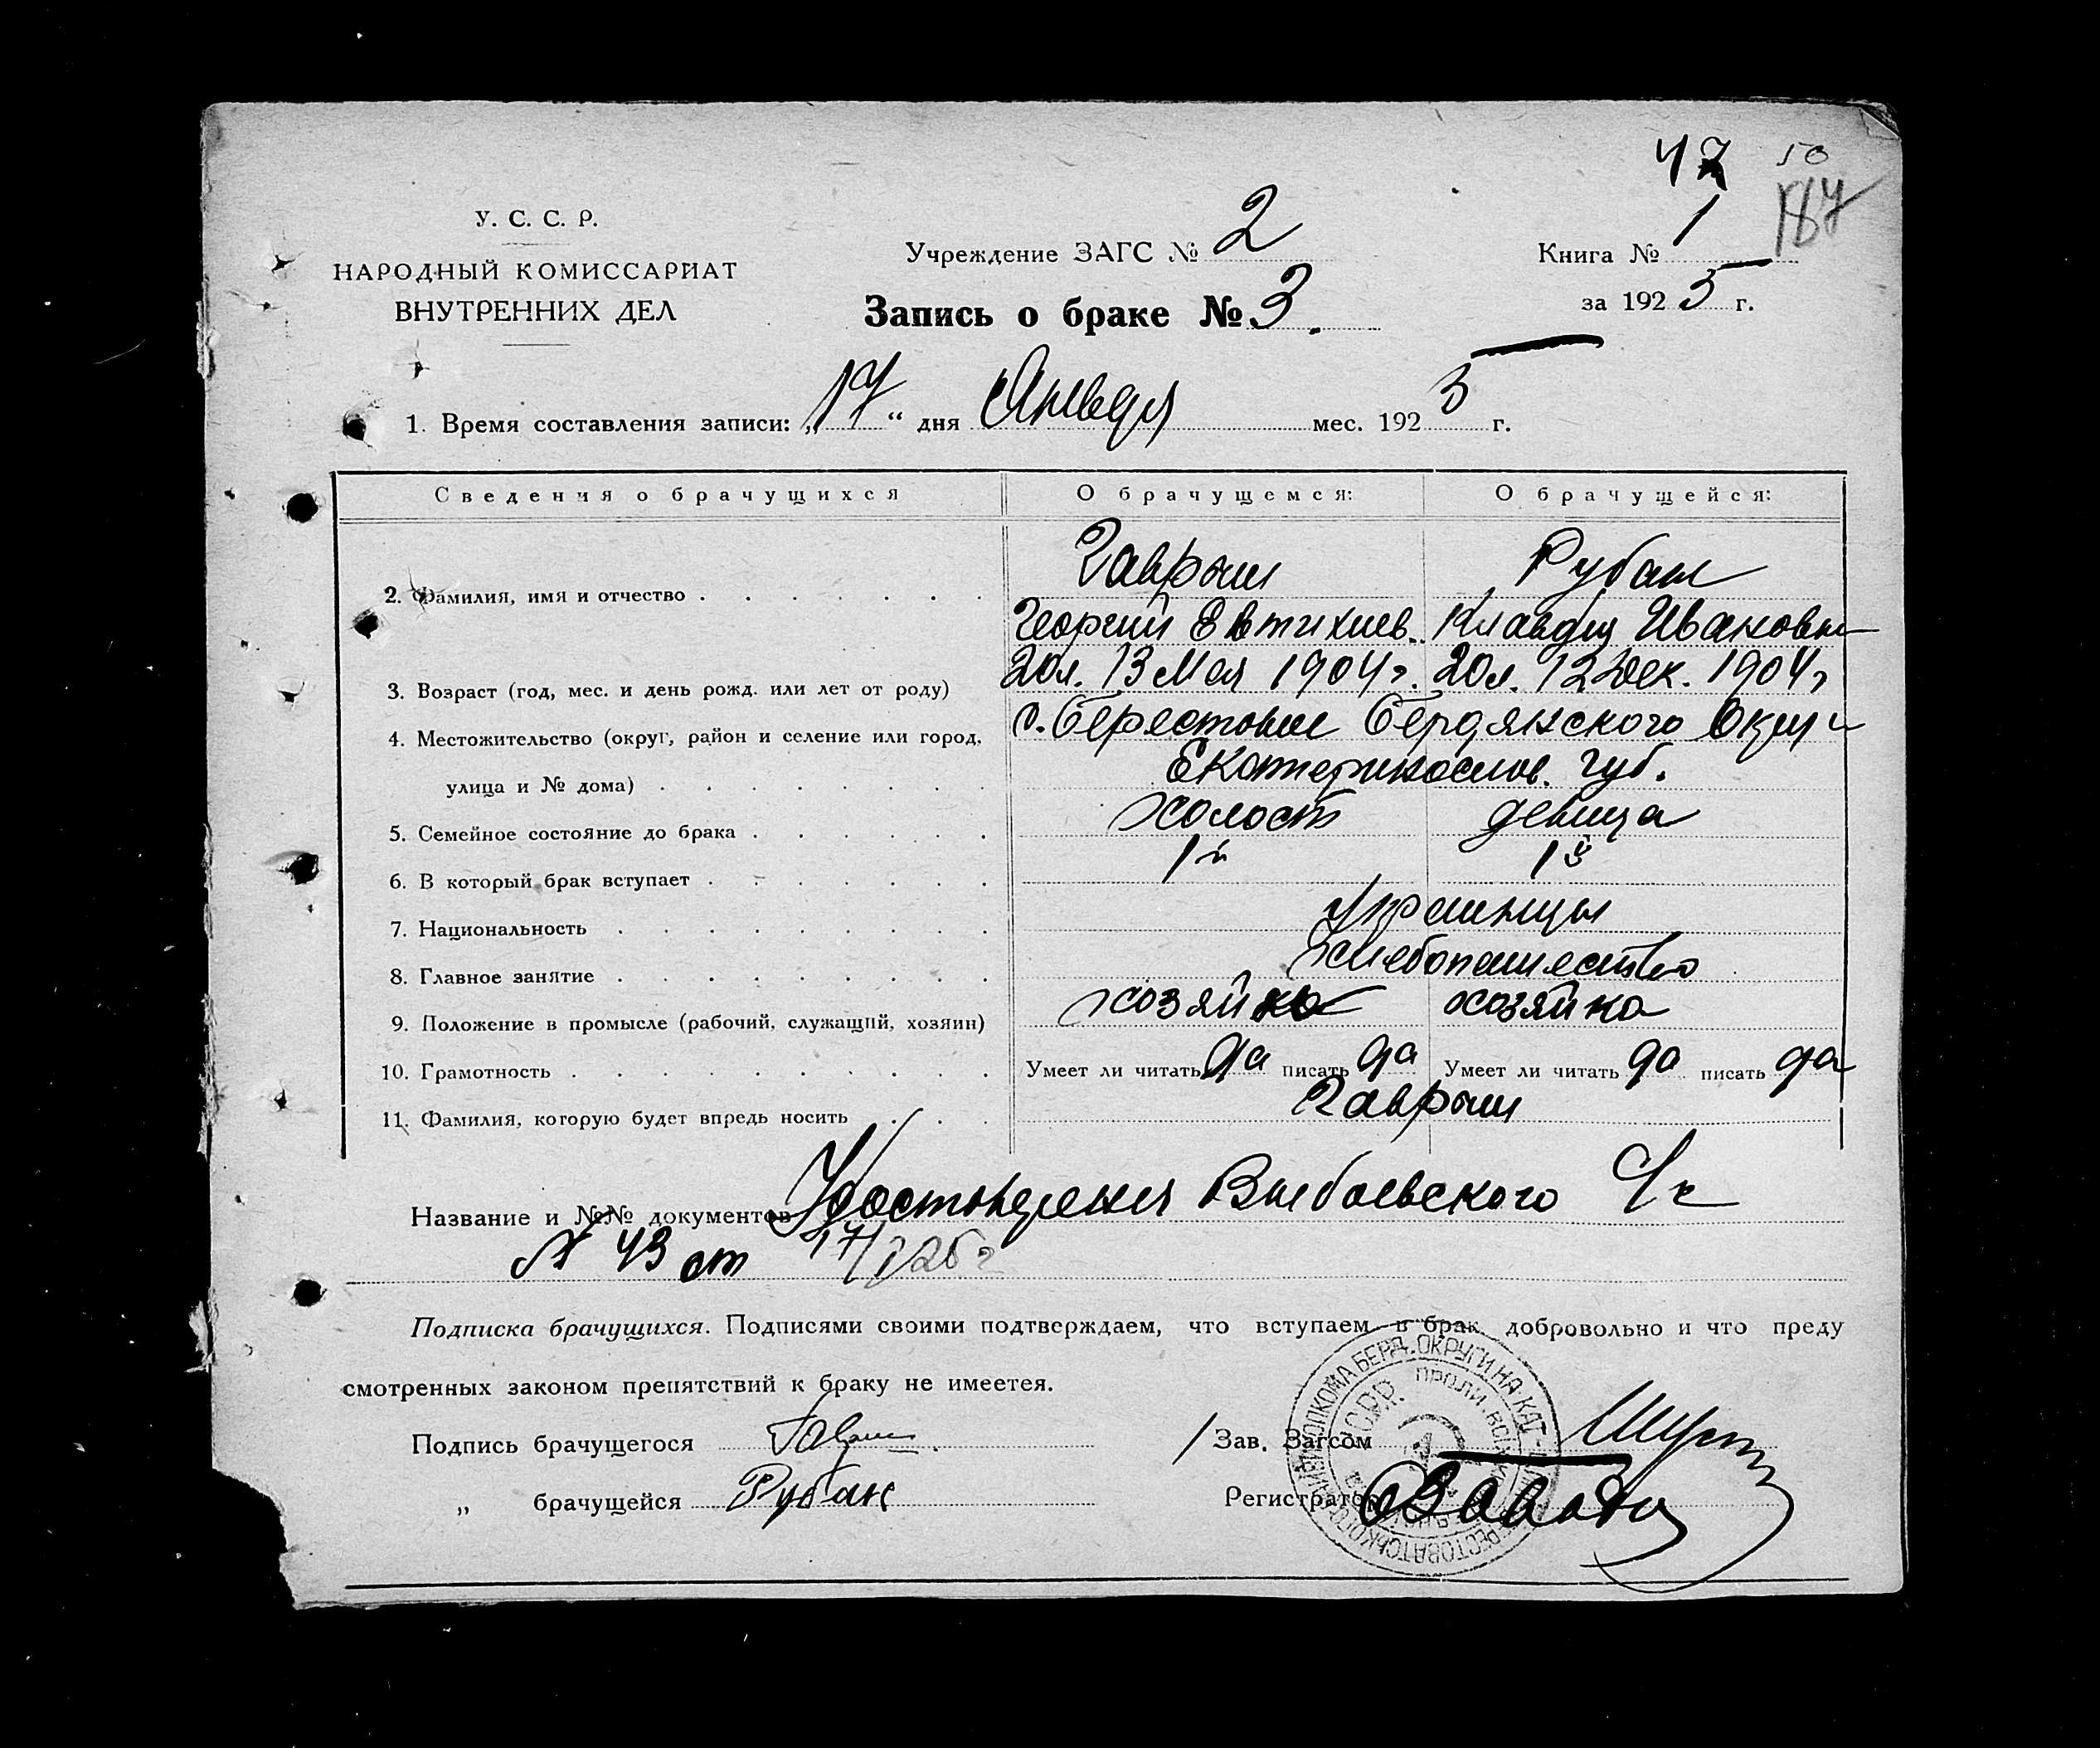 47 50
187
У. С. С. Р.
НАРОДНЫЙ КОМИССАРИАТ
ВНУТРЕННИХ ДЕЛ
Учреждение ЗАГС № 2
Книга № 1
Запись о браке № 3.
за 1925 г.
1. Время составления записи: „17“ дня Января мес. 1925 г.
Сведения о брачущихся О брачущемся: О брачущейся:
2. Фамилия, имя и отчество Гавриш Рубан
Георгий Евтихиев. Клавдия Ивановн
3. Возраст (год, мес. и день рожд. или лет от роду) 20л. 13 Мая 1904г. 20л. 12 Дек. 1904г
4. Местожительство (округ, район и селение или город, с. Берестовое Бердянского Округ
улица и № дома) Екатеринослав. губ.
5. Семейное состояние до брака холост девица
6. В который брак вступает 1й 1й
7. Национальность Украинцы
8. Главное занятие Хлебопашество
9. Положение в промысле (рабочий, служащий, хозяин) хозяин хозяйка
10. Грамотность Умеет ли читать да писать да Умеет ли читать да писать да
11. Фамилия, которую будет впредь носить Гавриш
Название и №№ документов Удостоверения
№ 43 от 17/I 25 г
Подписка брачущихся. Подписями своими подтверждаем, что вступаем в брак добровольно и что преду
смотренных законом препятствий к браку не имеетея.
Подпись брачущегося Гавриш
Зав. Загсом
„ брачущейся Рубан
Регистратор